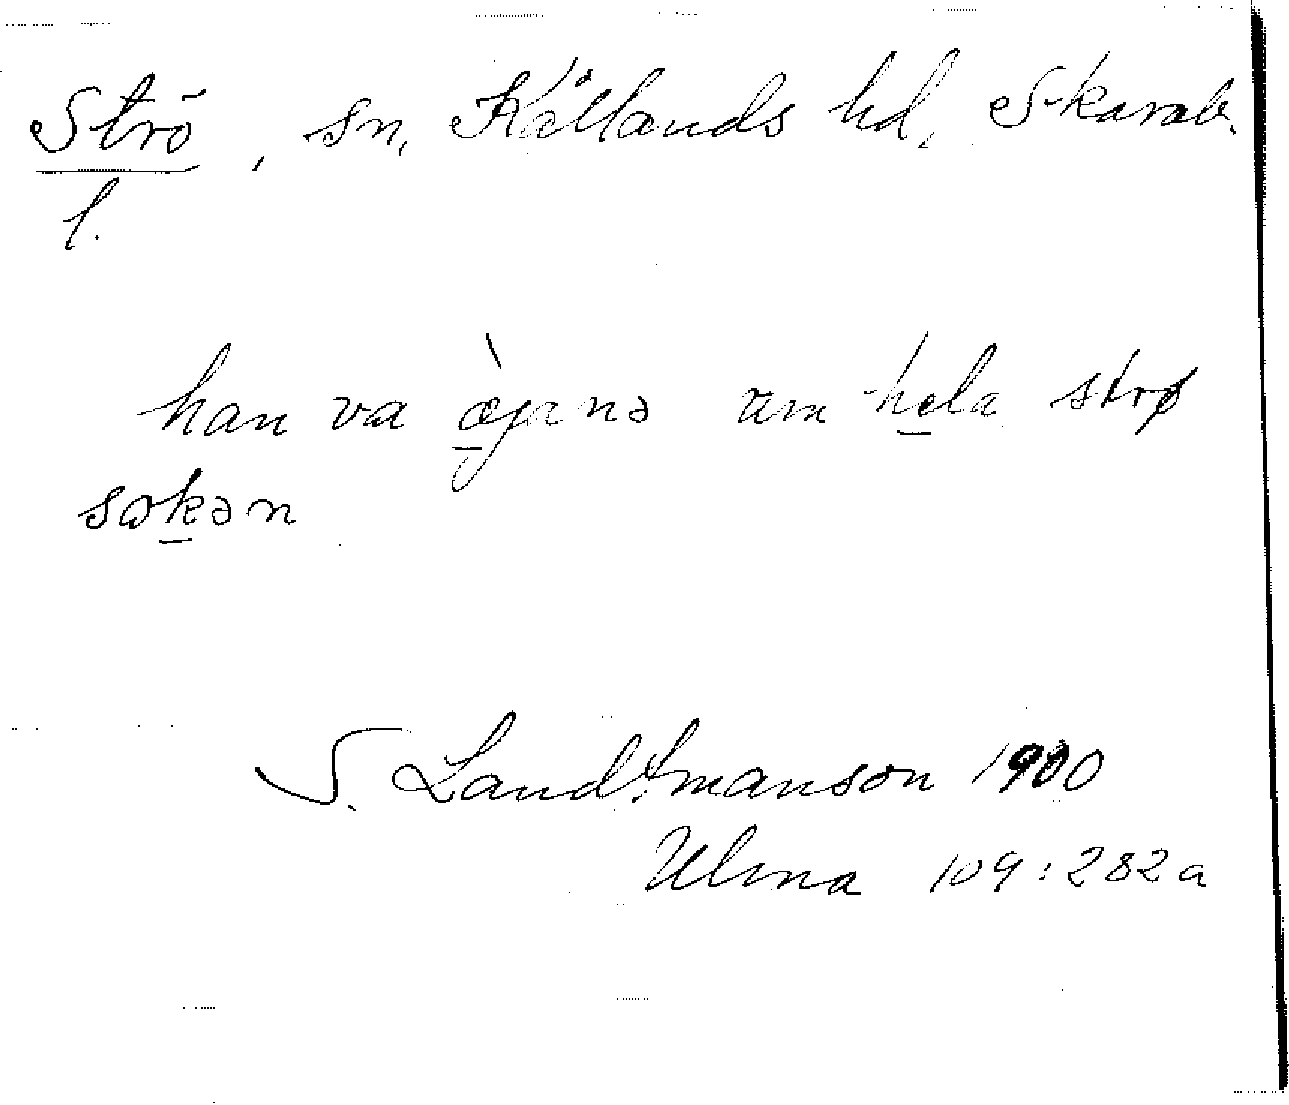 Strö, sn, Kållands hd, Skarab.
l.
han va æ̀jɑnə um hela strø
sokən
S. Landtmanson 1900
Ulma 109:282a